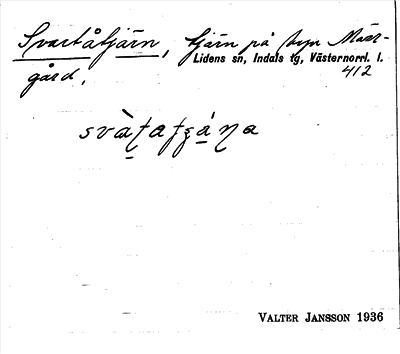 Svartåtjärn, tjärn på byn Mäss-
Lidens sn, Indals tg, Västernorrl. l.
gård,
412
VALTER JANSSON 1936